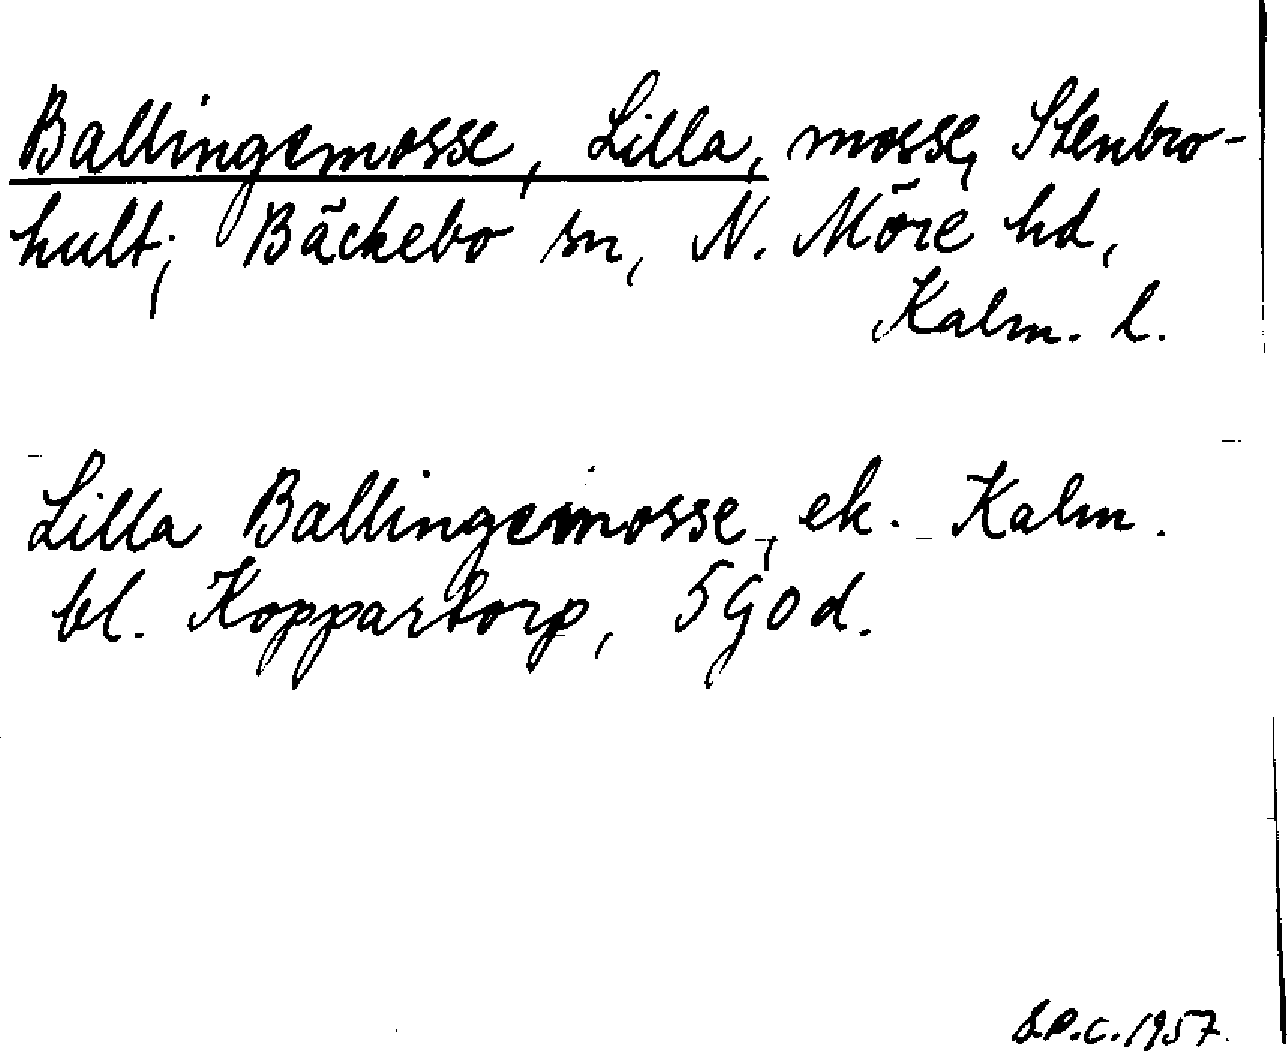 Ballingemosse, Lilla, mosse, Stenbro-
hult; Bäckebo sn, N. Möre hd,
Kalm. l.
Lilla Ballingemosse, ek. Kalm.
bl. Koppartorp, 5G0d.
S.P.C. 1957.